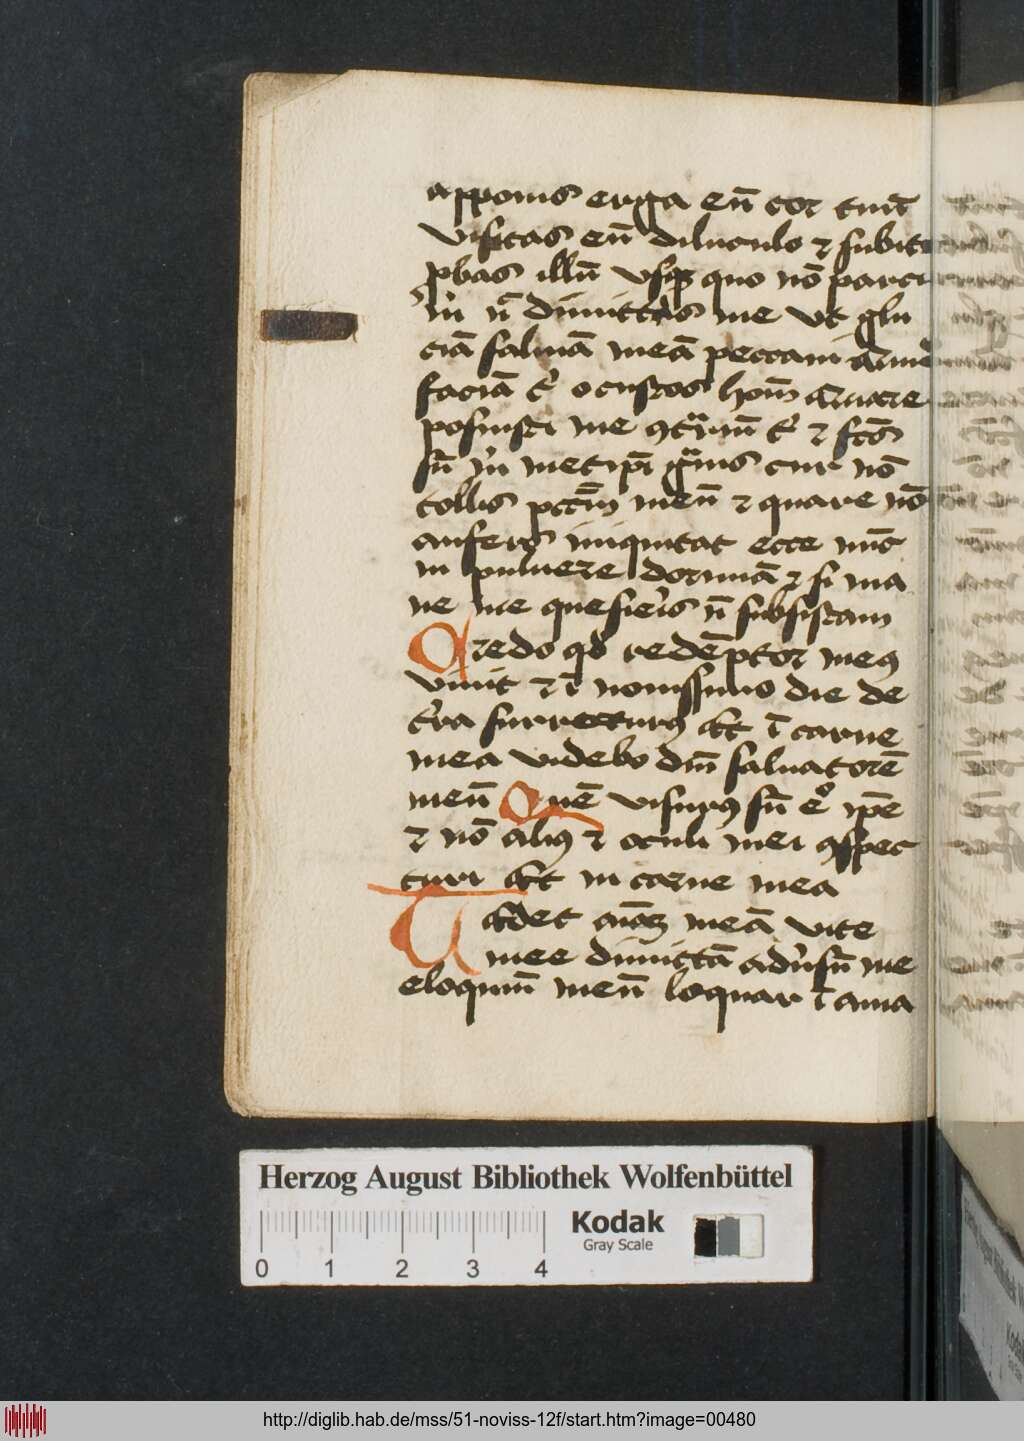 apponis erga eū cor tuū
visitas eū diluculo ⁊ subito
ꝓbas illū usqꝫ quo nō parcis
m̓ n̄ dimittis me ut glu
ciā saliuā meā peccaui
faciā t̓ o custos hoīm quare
posuisti me ꝯtrariū t̓ ⁊ fctūs
sū m̓ metip̄i gͣuis cur nō
tollis pctm̄ meū ⁊ quare nō
aufers iniquitat ecce nūc
in puluere dormiā ⁊ si ma
ne me quesieris n̄ subsistam
Credo qd redēptor meꝰ
viuit ⁊ ī nouissimo die de
t̓ra surrecturꝰ ī carne
mea videbo dm̄ saluatorē
meū Quē visurꝰ sū eͦ ip̄e
⁊ nō aliꝰ ⁊ oculi mei ꝯspec
turi in carne mea
Tedet meā vite
mee dimittā adūsū me
eloquiū meū loquar ī ama
Herzog August Bibliothek Wolfenbüttel
Kodak
Gray Scale
0 1 2 3 4
http://diglib.hab.de/mss/51-noviss-12f/start.htm?image=00480